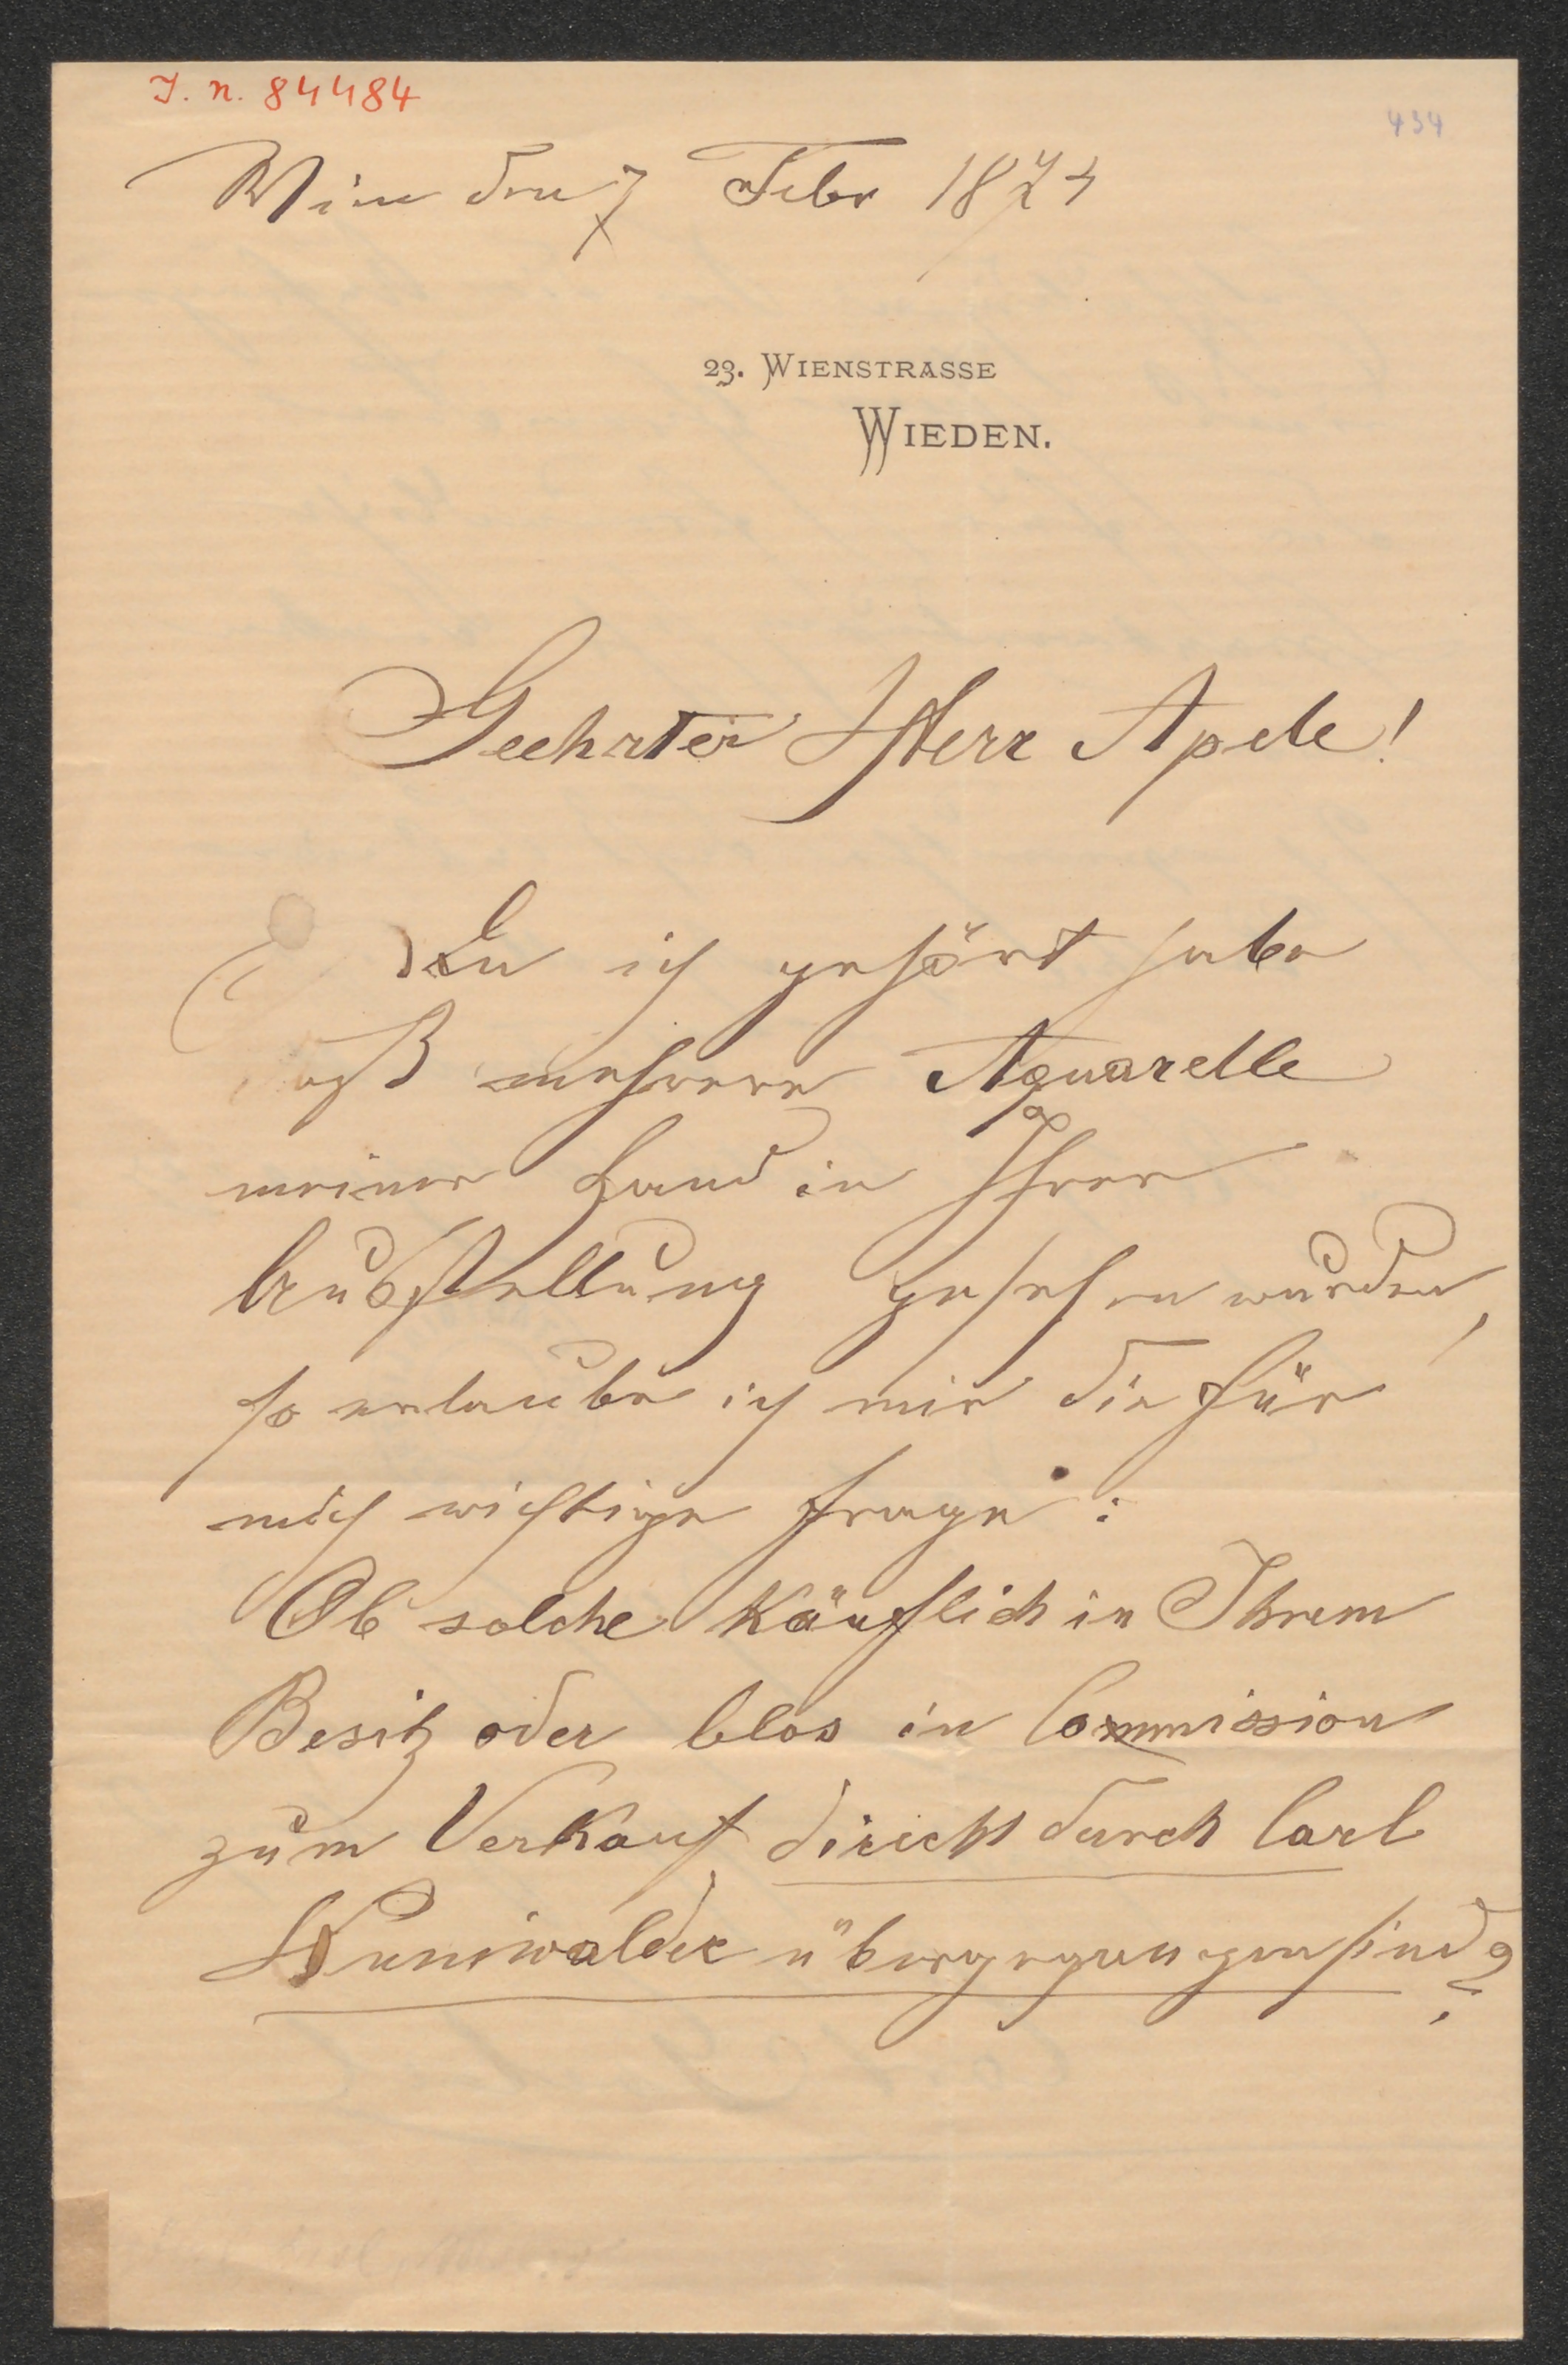 I. n. 84484
434
Wien den 7 Febr 1874
23. WIENSTRASSE
WIEDEN.
Geehrter Herr Apele!
Da ich gehört habe
daß mehrere Aquarelle
meiner Hand in Ihrer
Ausstellung gesehen wurden,
so erlaube ich mir die für
mich wichtige Frage:
Ob solche Käuflich in Ihrem
Besitz oder blos in Commission
zum Verkauf direckt durch Carl
übergegangen sind?